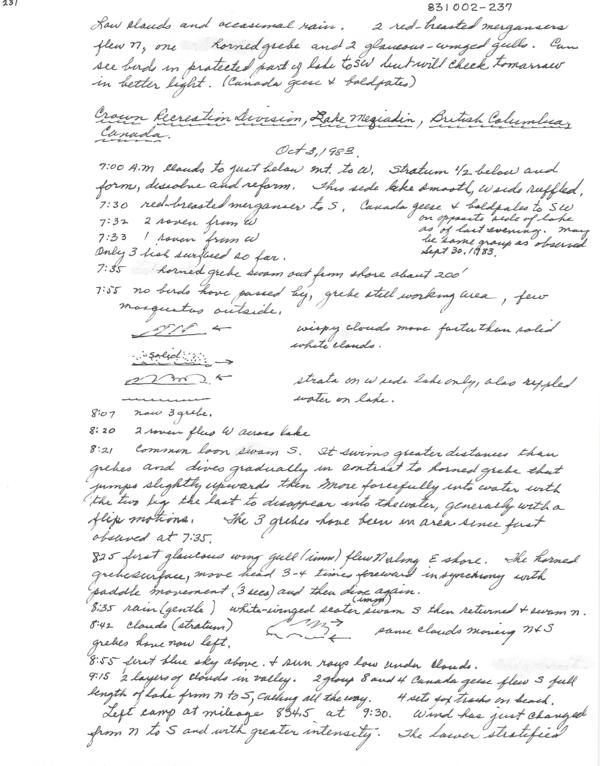 237
831002-237
Low clouds and occasional rain. 2 red-breasted mergansers
flew N, one horned grebe and 2 glaucous-winged gulls. Can
see birds in protected part of lake to SW but will check tomorrow
in better light. (Canada geese & baldpates)
Crown Recreation Division, Lake Meziadin, British Columbia,
Canada.
Oct 3, 1983.
7:00 A.M clouds to just below mt. to W. Stratum 1/2 below and
form, dissolve and reform. This side lake smooth, W side ruffled.
7:30 red-breasted merganser to S, Canada geese & baldpates to SW
on opposite side of lake
7:32 2 raven from W
as of last evening. may
7:33 1 raven from W
be same group as observed
Sept 30, 1983.
Only 3 fish surfaced so far.
7:35 1 horned grebe swam out from shore about 200'
7:55 no birds have passed by, grebe still working area, few
mosquitos outside.
wispy clouds move faster than solid
white clouds.
solid
strata on W side lake only, also rippled
water on lake.
8:07 now 3 grebe.
8:20 2 raven flew W across lake
8:21 Common loon swam S. It swims greater distances than
grebes and dives gradually in contrast to horned grebe that
jumps slightly upwards then more forcefully into water with
the two leg the last to disappear into the water, generally with a
flip motions. The 3 grebes have been in area since first
observed at 7:35.
825 first glaucous wing gull (imm) flew N along E shore. The horned
grebe surface, move head 3-4 times foreward in synchrony with
paddle movement (3 secs) and then dive again.
(imm)
8:35 rain (gentle) white-winged scoter swam S then returned & swam N.
8:42 clouds (stratum) same clouds moving N & S
grebes have now left.
8:55 first blue sky above. & sun rays low under clouds.
9:15 2 layers of clouds in valley. 2 group 8 and 4 Canada geese flew S full
length of lake from N to S, calling all the way. 4 sets fox tracks on beach.
Left camp at mileage 834.5 at 9:30. Wind has just changed
from N to S and with greater intensity. The lower stratified